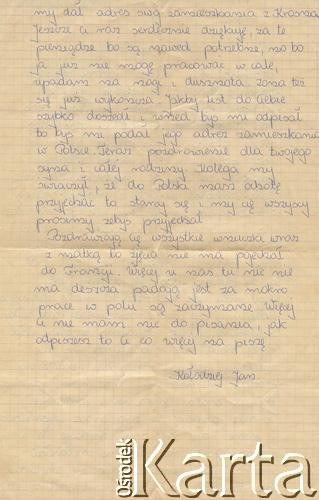 my dał adres swój zamieszkania z Krasza
Jeszcze u nas serdecznie dziękuję, za te
pieniądze bo są nawed potrzebne, no bo
ja już nie mogę pracować w cale,
upadam na nogi i duszność. Żona też
się już wykończa. Jakby list do Ciebie
szybko doszedł i wrzed byś mi odpisał
to byś mi podał jego adres zamieszkania
w Polsce. Teraz pozdrowienie dla twojego
syna i całej rodziny Kolega my
świarczył, że do Polski masz odsotę
przyjechać to staraj się i my cię wszyscy
prosimy żebyś przyjechał
Pozdrawiają cię wszystkie wnuczki wraz
z matką bo zięcia nie ma pojechał
do Francji. Więcej u nas tu nic nie
ma deszcza padają jest za mokro
prace w polu są zaczynane. Więcej
u nie mam nic do pisania, jak
odpiszesz to u co więcej na piszę
Kołodziej Jan
Ośrodek
Karta